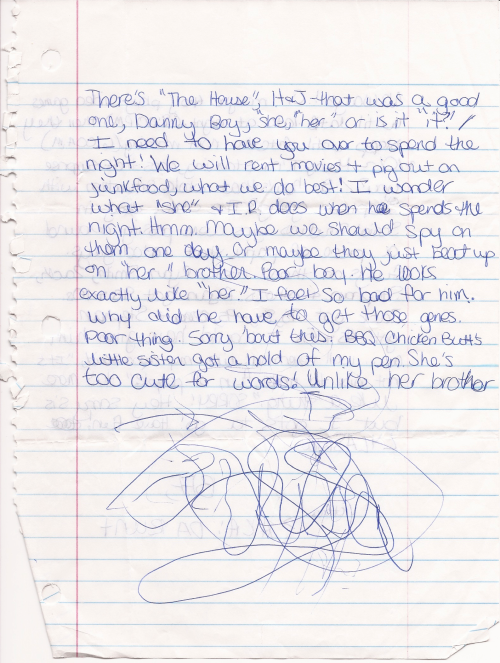 There's "The House", H&J-that was a good
one, Danny Boy, "she," "her" or is it "it?"!
I need to have you over to spend the
night! We will rent movies + pig out on
junkfood, what we do best! I wonder
what "she" + I.P. does when he spends the
night. Hmm. Maybe we should spy on
them one day. Or maybe they just beat up
on "her" brother. Poor boy. He looks
exactly like "her." I feel so bad for him.
Why did he have to get those genes.
Poor thing. Sorry 'bout this: BBQ Chicken Butt's
little sister got a hold of my pen. She's
too cute for words! Unlike her brother